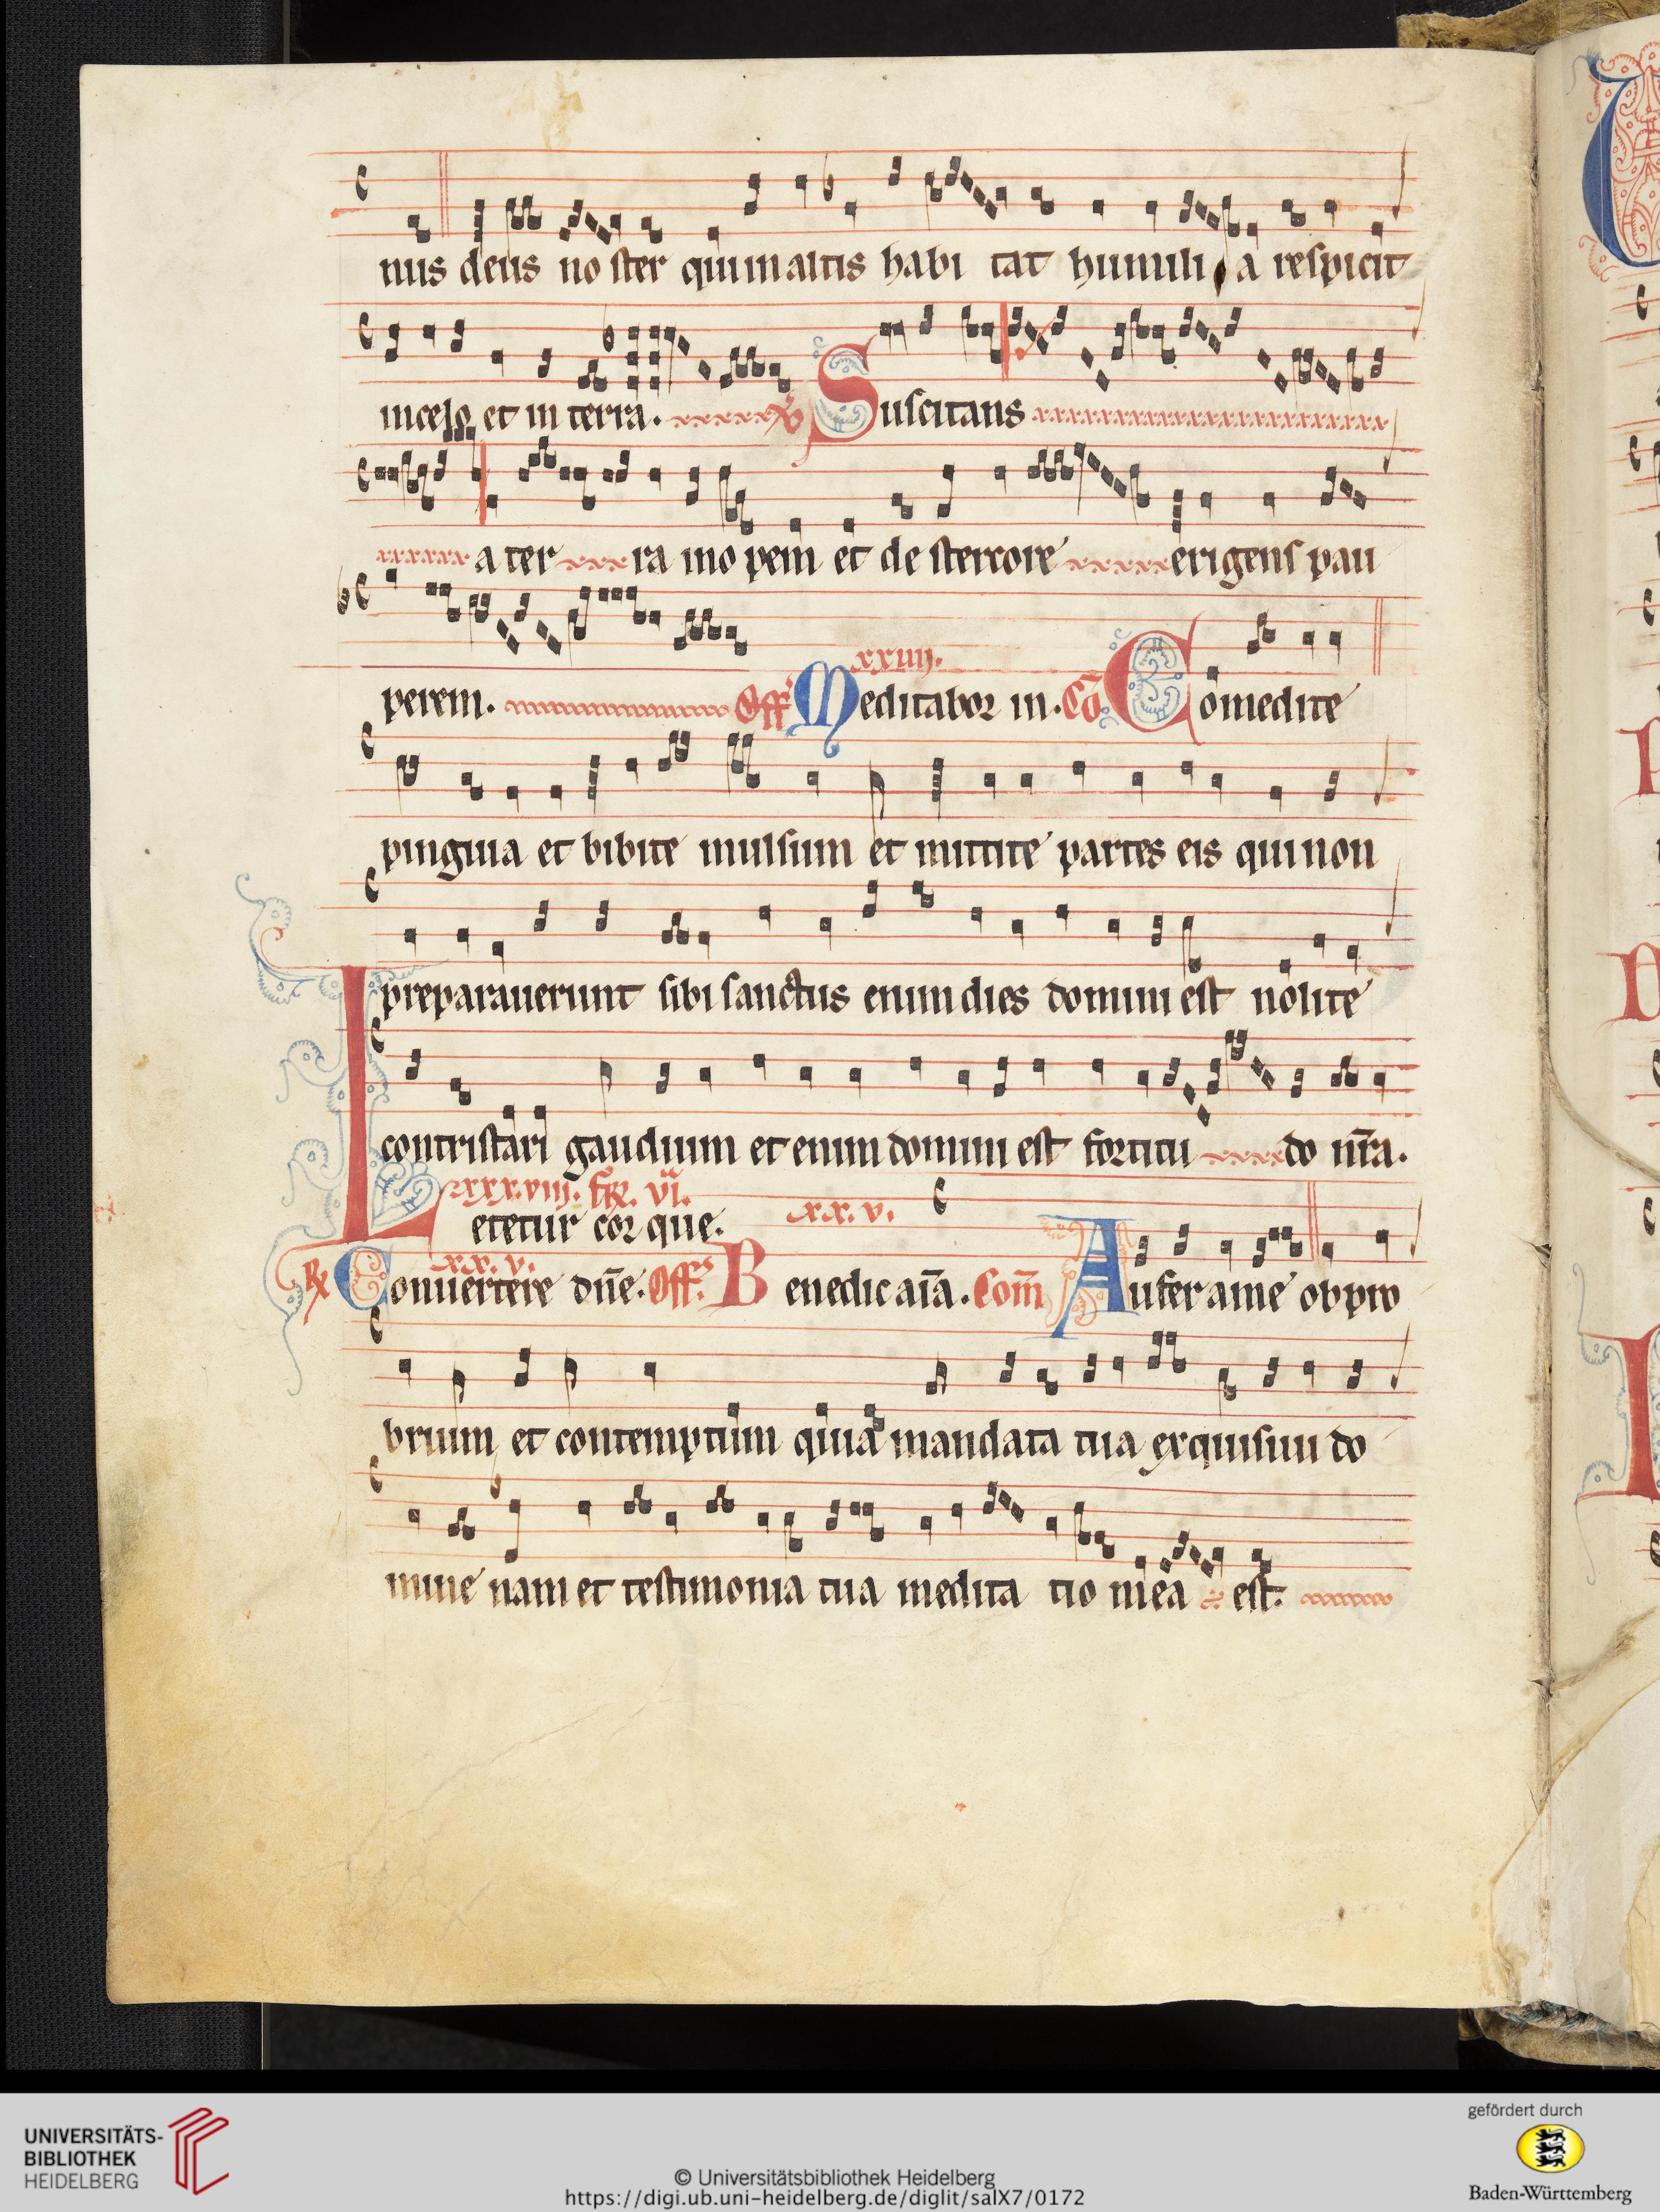 nus deus noster qui in altis habitat humilia respicit
in celo et in terra. ℣ Suscitans
a terra inopem et de stercore erigens pau
perem. Off. Meditabor in. Cō Comedite
xxiiij.
pinguia et bibite mulsum et mittite partes eis qui non
preparauerunt sibi sanctus enim dies domini est nolite
contristari gaudium et enim domini est fortitudo nr̄a.
lxxx.viij. fr̄. vi.
Letetur cor que. xx. v.
xx. v.
℟ Conuertere dn̄e. Off. Benedic aīa. Com̄ Aufer a me obpro
brium et contemptum quia mandata tua exquisiui do
mine nam et testimonia tua meditatio mea est.
UNIVERSITÄTS-
BIBLIOTHEK
HEIDELBERG
© Universitätsbibliothek Heidelberg
https://digi.ub.uni-heidelberg.de/diglit/salX7/0172
gefördert durch
Baden-Württemberg